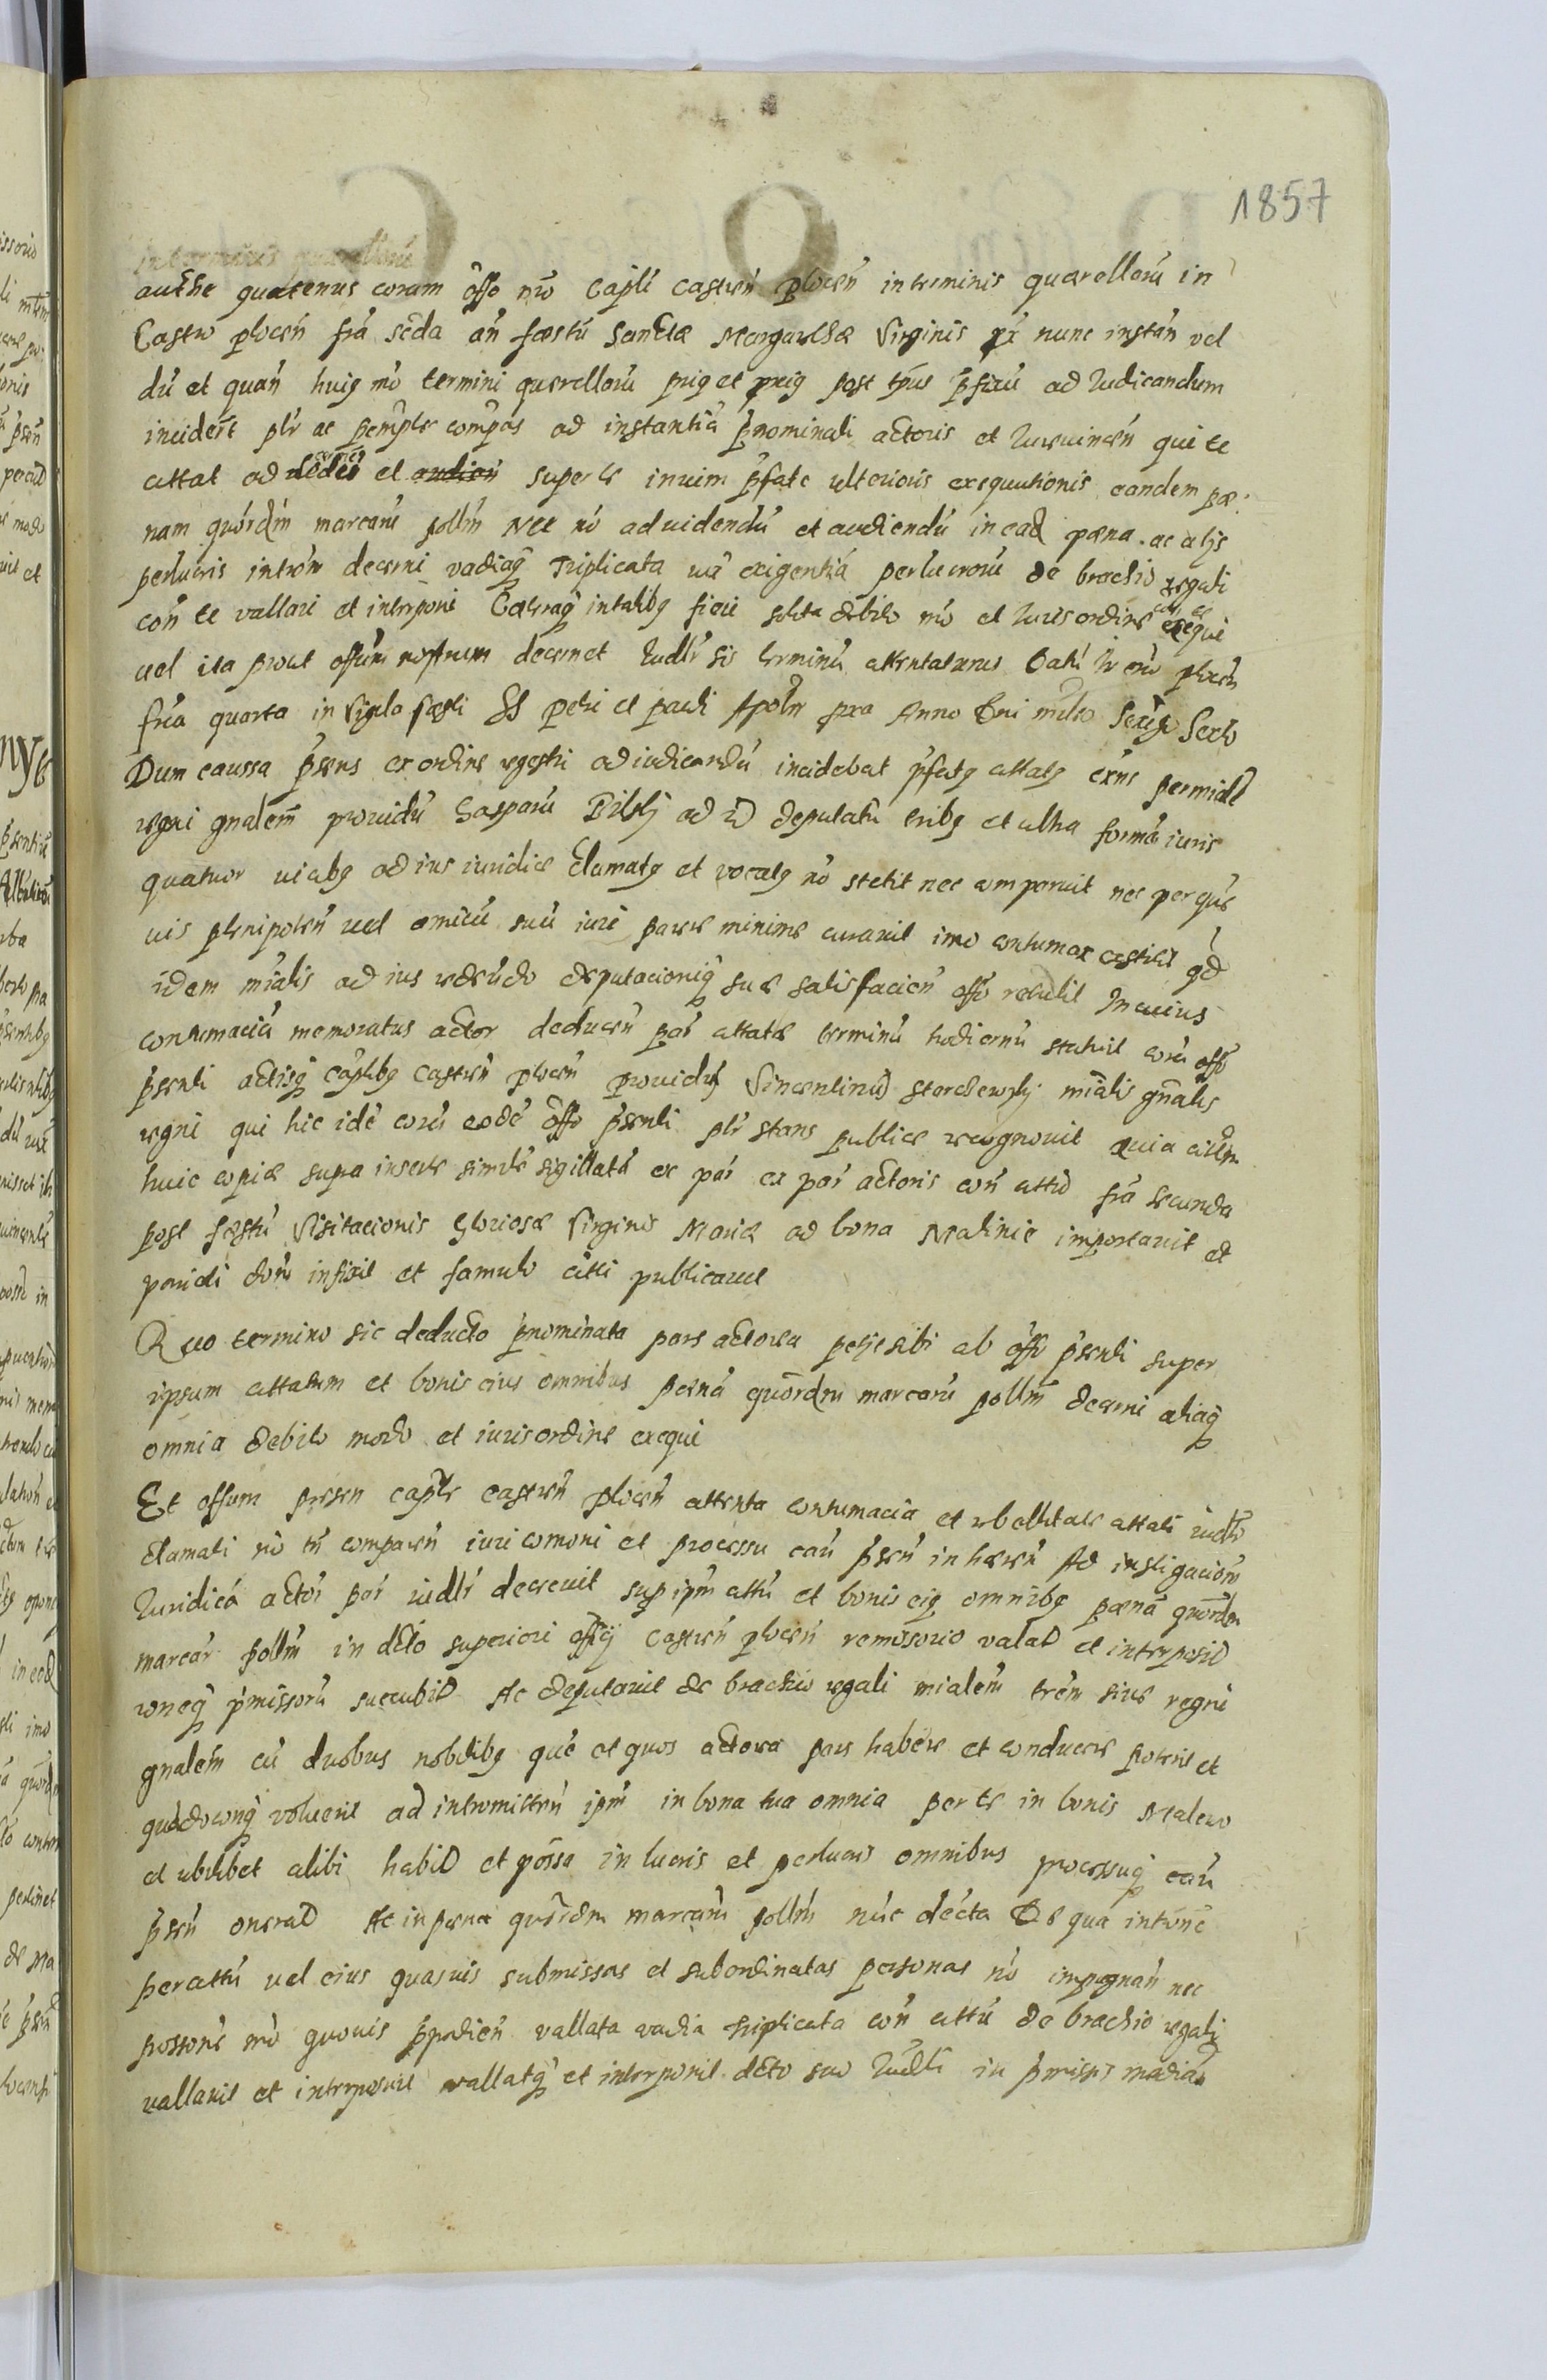 1857
in terminis querellarũ
authe quatenus coram offo nr̃o Capli Castreñ ploceñ in terminis querellarũ in
Castro ploceñ fr̃a sc̃da añ fæstũ Sanctæ Margarethæ Virginis pr̃ nunc instañ vel
dũ et quañ huiq mõ termini querellarũ priq et post tp̃us p̃fixũ ad Iudicandum
inciderit plr̃ ac comp̃as ad instantiã p̃nominati actoris et qui te
cittat ad et audien super te in vim p̃fate ulterioris exequutionis eandem pæ-
nam quordm marcarũ polm̃ Nec nõ ad videndũ et audiendũ in ead pæna ac alijs
perlucris decerni vadiaq̃ Triplicata exigentiã perlucrorũ de brachio regali
coñ te vallari et interponi Cæteraq̃ in talibq fieri solita debito mõ et Iuris ordine exequi
vel ita prout offum nostrum decernet Iudlr̃ sis terminũ attentaturus Datũ ploceñ
fr̃ia quarta in Vigilia fæsti SS petri et pauli Apolor̃ pxa Anno Dni millo Sexto
Dum caussa p̃sens ex ordine regestri ad iudicandũ incidebat p̃fatq cittatq
regni gnalem̃ providũ Gasparũ ad id deputatũ tribq et ultra formã iuris
quatuor vicibq ad ius iuridice Clamatq et vocatq nõ stetit nec comparuit nec per quẽ
vis plenipoteñ vel amicũ suũ iuri parere minime curavit imo contumax extitit qd
idem mialis ad ius redeũdo deputacioniq̃ suæ satisfacieñ offo retulit In cuius
contumaciã memoratus actor deduceñ par̃ cittatæ terminũ hodiernũ statuit corã offo
p̃senti actisq̃ caplibq castreñ ploceñ providũ Vincentinũ mialis gñalis
regni qui hic idẽ corã eodẽ offo p̃senti plr̃ stans publice recognovit Quia
huic copiæ supra insertæ similẽ sigillatã ex par̃ ex par̃ actoris coñ cittũ fr̃a secunda
post fæstũ Visitacionis Gloriosæ Virginis Mariæ ad bona Malinie importavit et
infixit et famulo citti publicavit
Quo termino sic deducto p̃nominata pars actorea petijt sibi ab offo p̃senti super
ipsum cittatum et bonis eius omnibus pænã quordm marcarũ pollm̃ decerni aliaq̃
omnia debito modo et iuris ordine exequi
Et offum presen caple castreñ ploceñ attenta contumacia et rebellitate cittati iudlr̃
clamati nõ tñ compareñ iuri comoni et processu cañ p̃señ inhæreñ Ad instigacioñ
Iuridicã actor̃ par̃ iudlr̃ decrevit sup ipm̃ cittũ et bonis eiq omnibq pænã quordm
marcar̃ pollm̃ in dcto superiori officij castreñ ploceñ remissorio valat et interposit
p̃missorũ succubit Ac deputavit de brachio regali mialem̃ trẽm sive regni
gnalem̃ cũ duobus nobilibq quẽ et quos actorea pars habere et conducere poterit et
quãdocunq̃ voluerit ad intromitteñ ipm̃ in bona tua omnia per te in bonis Malewo
et ubilibet alibi habit et possa in lucris et perlucris omnibus processuq̃ cañ
p̃señ onerat Ac in pæna quordm marcarũ pollm̃ nũc decta De quã
per cittũ vel eius quasvis submissas et subordinatas personas nõ impugnañ nec
mõ quovis p̃pedieñ vallata vadia triplicata coñ cittũ de brachio regali
vallavit et interposuit vallatq̃ et interponit dcto suo Iudlr̃ in p̃missis